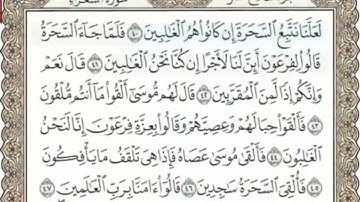 لَعَلَّنَا نَتَّبِعُ ٱلسَّحَرَةَ إِن كَانُوا۟ هُمُ ٱلْغَٰلِبِينَ ٤٠ فَلَمَّا جَآءَ ٱلسَّحَرَةُ
قَالُوا۟ لِفِرْعَوْنَ أَئِنَّ لَنَا لَأَجْرًا إِن كُنَّا نَحْنُ ٱلْغَٰلِبِينَ ٤١ قَالَ نَعَمْ
وَإِنَّكُمْ إِذًا لَّمِنَ ٱلْمُقَرَّبِينَ ٤٢ قَالَ لَهُم مُّوسَىٰٓ أَلْقُوا۟ مَآ أَنتُم مُّلْقُونَ
٤٣ فَأَلْقَوْا۟ حِبَالَهُمْ وَعِصِيَّهُمْ وَقَالُوا۟ بِعِزَّةِ فِرْعَوْنَ إِنَّا لَنَحْنُ
ٱلْغَٰلِبُونَ ٤٤ فَأَلْقَىٰ مُوسَىٰ عَصَاهُ فَإِذَا هِىَ تَلْقَفُ مَا يَأْفِكُونَ
٤٥ فَأُلْقِىَ ٱلسَّحَرَةُ سَٰجِدِينَ ٤٦ قَالُوٓا۟ ءَامَنَّا بِرَبِّ ٱلْعَٰلَمِينَ ٤٧